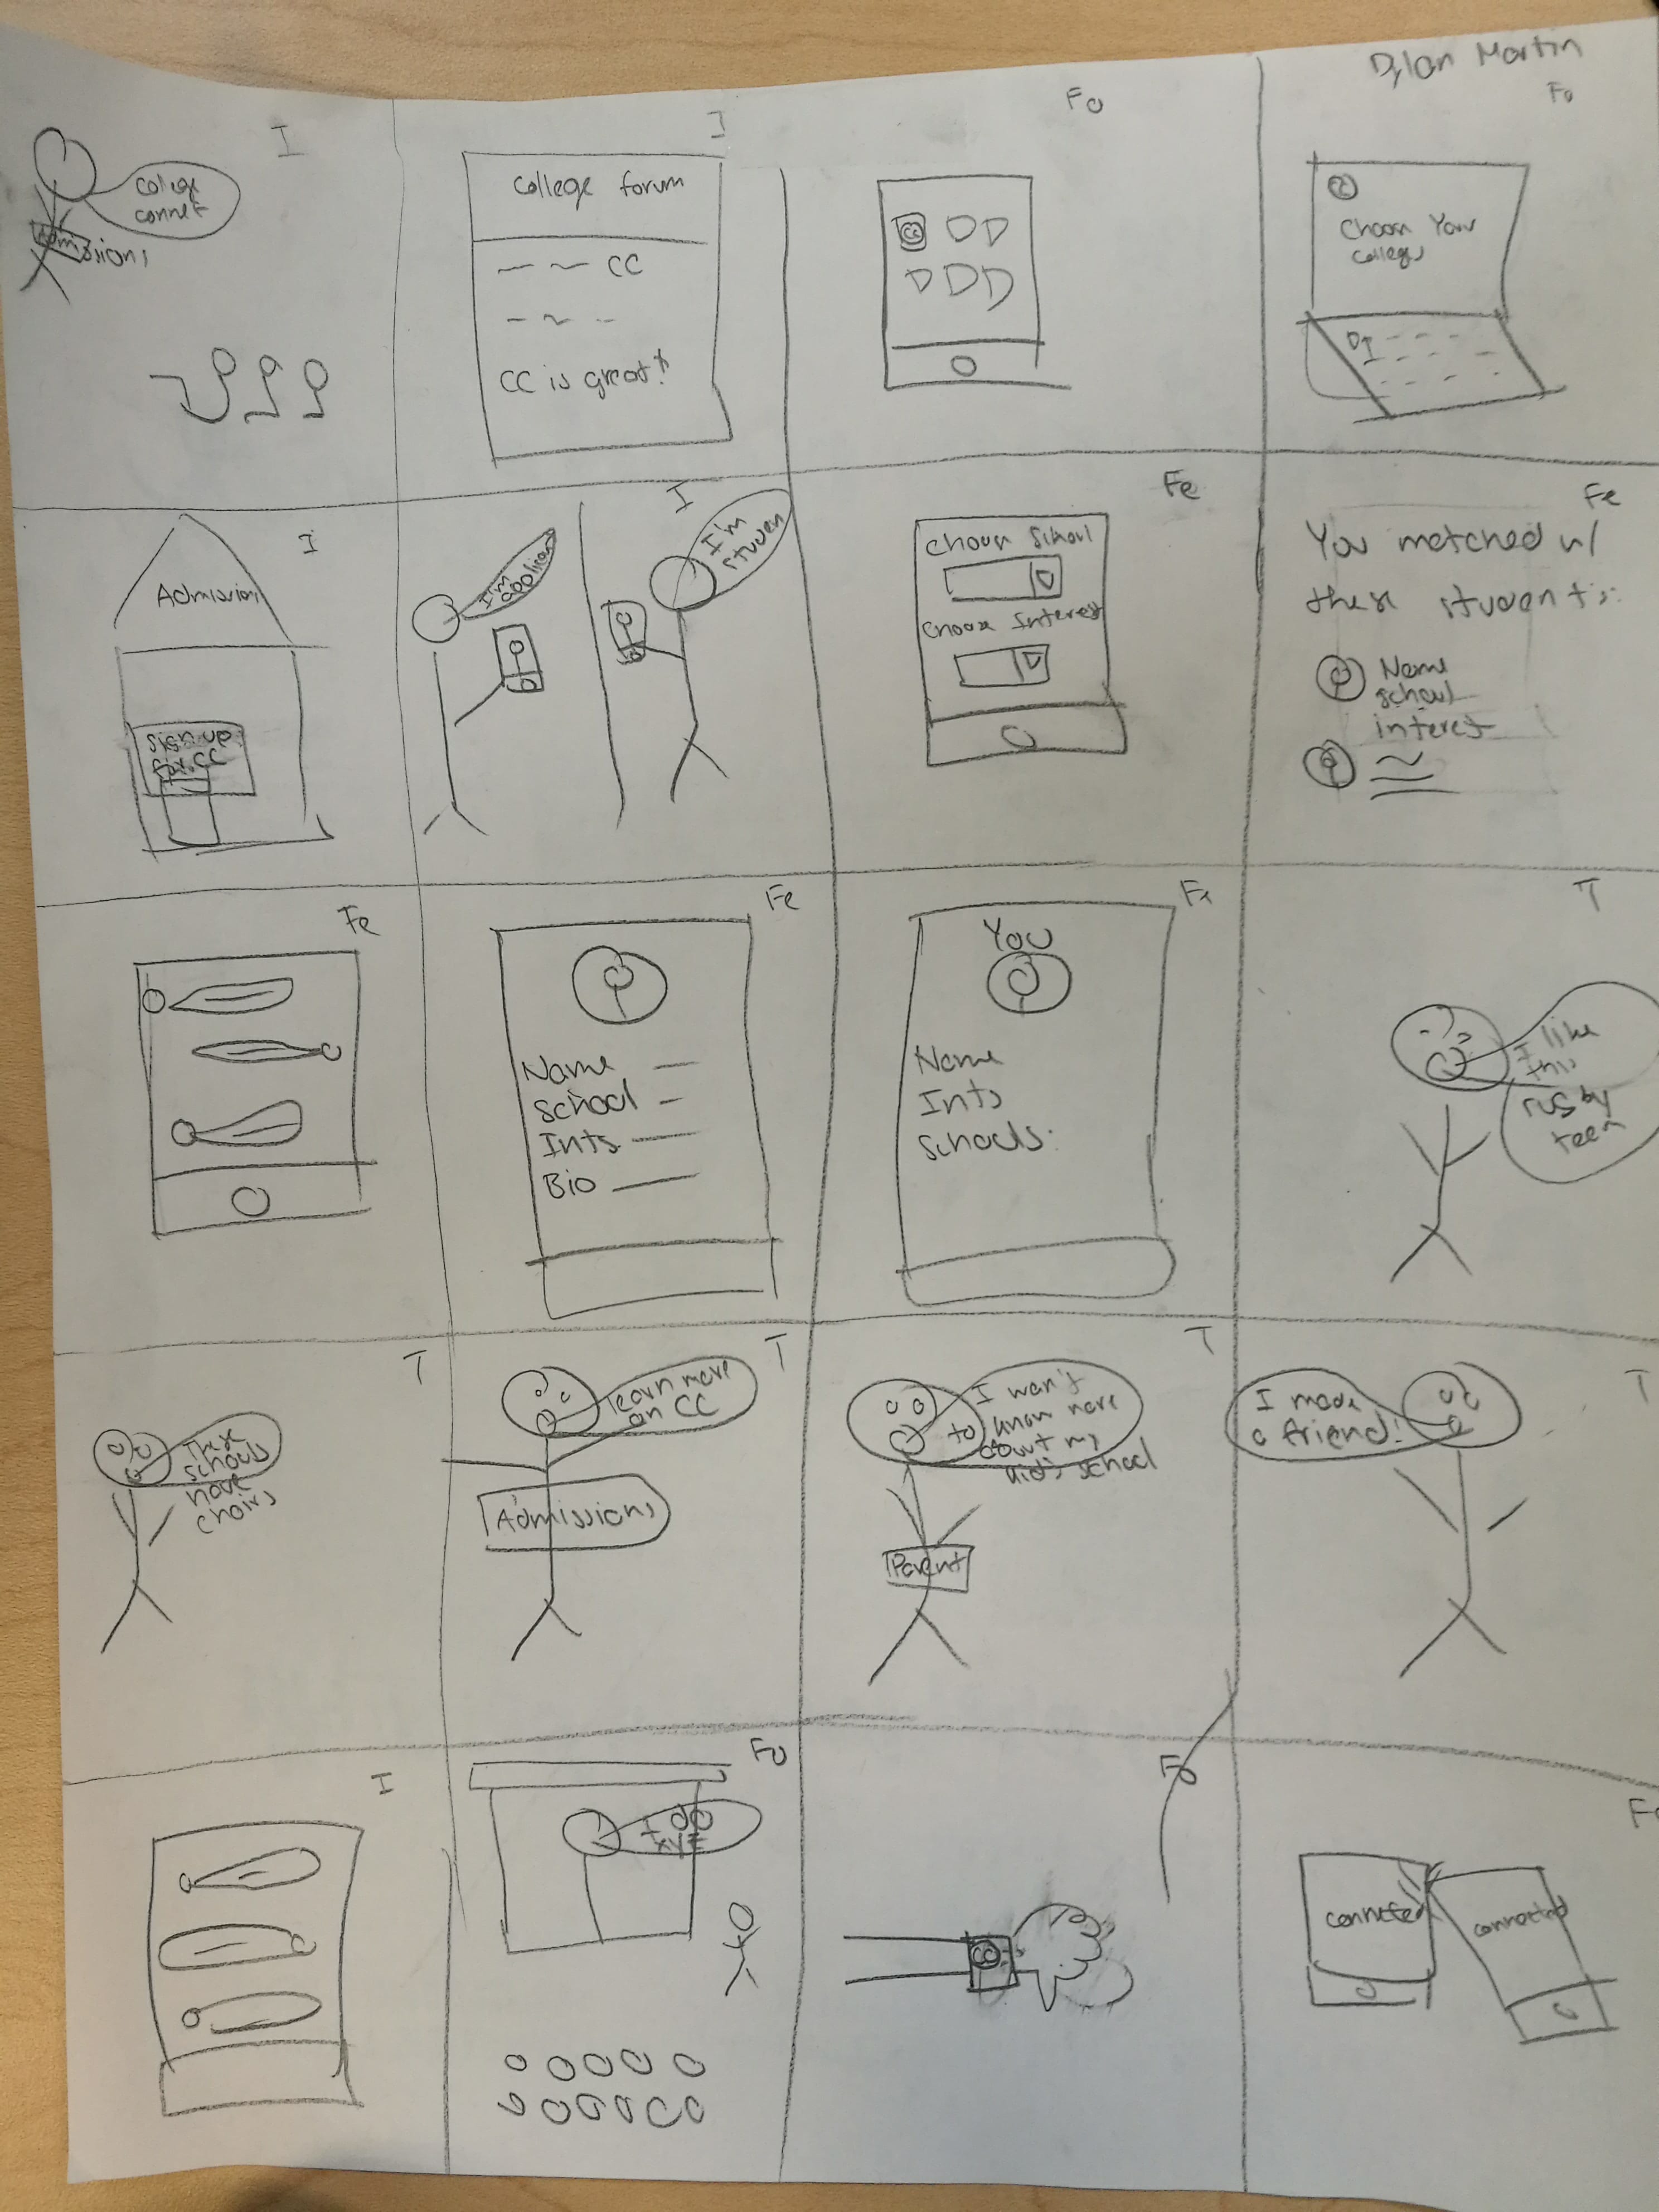 Dylan Martin
I
college
connet
Admissions
I
college forum
CC
CC is great!
Fo
CC
Fo
CC
Choose Your
college
I
Admissions
Sign up
for CC
I
I'm
I'm
studen
Fe
Choose School
Choose Interest
Fe
You matched w/
these students:
Name
school
interest
Fe
Fe
Name
School
Ints
Bio
Fe
You
Name
Ints
Schools:
T
I like
this
rugby
team
T
These
schools
have
choirs
T
learn more
on CC
Admissions
T
I want
to know more
about my
kid's school
Parent
T
I made
a friend!
I
Fo
I do
XYZ
Fo
CC
Fo
connected
connected